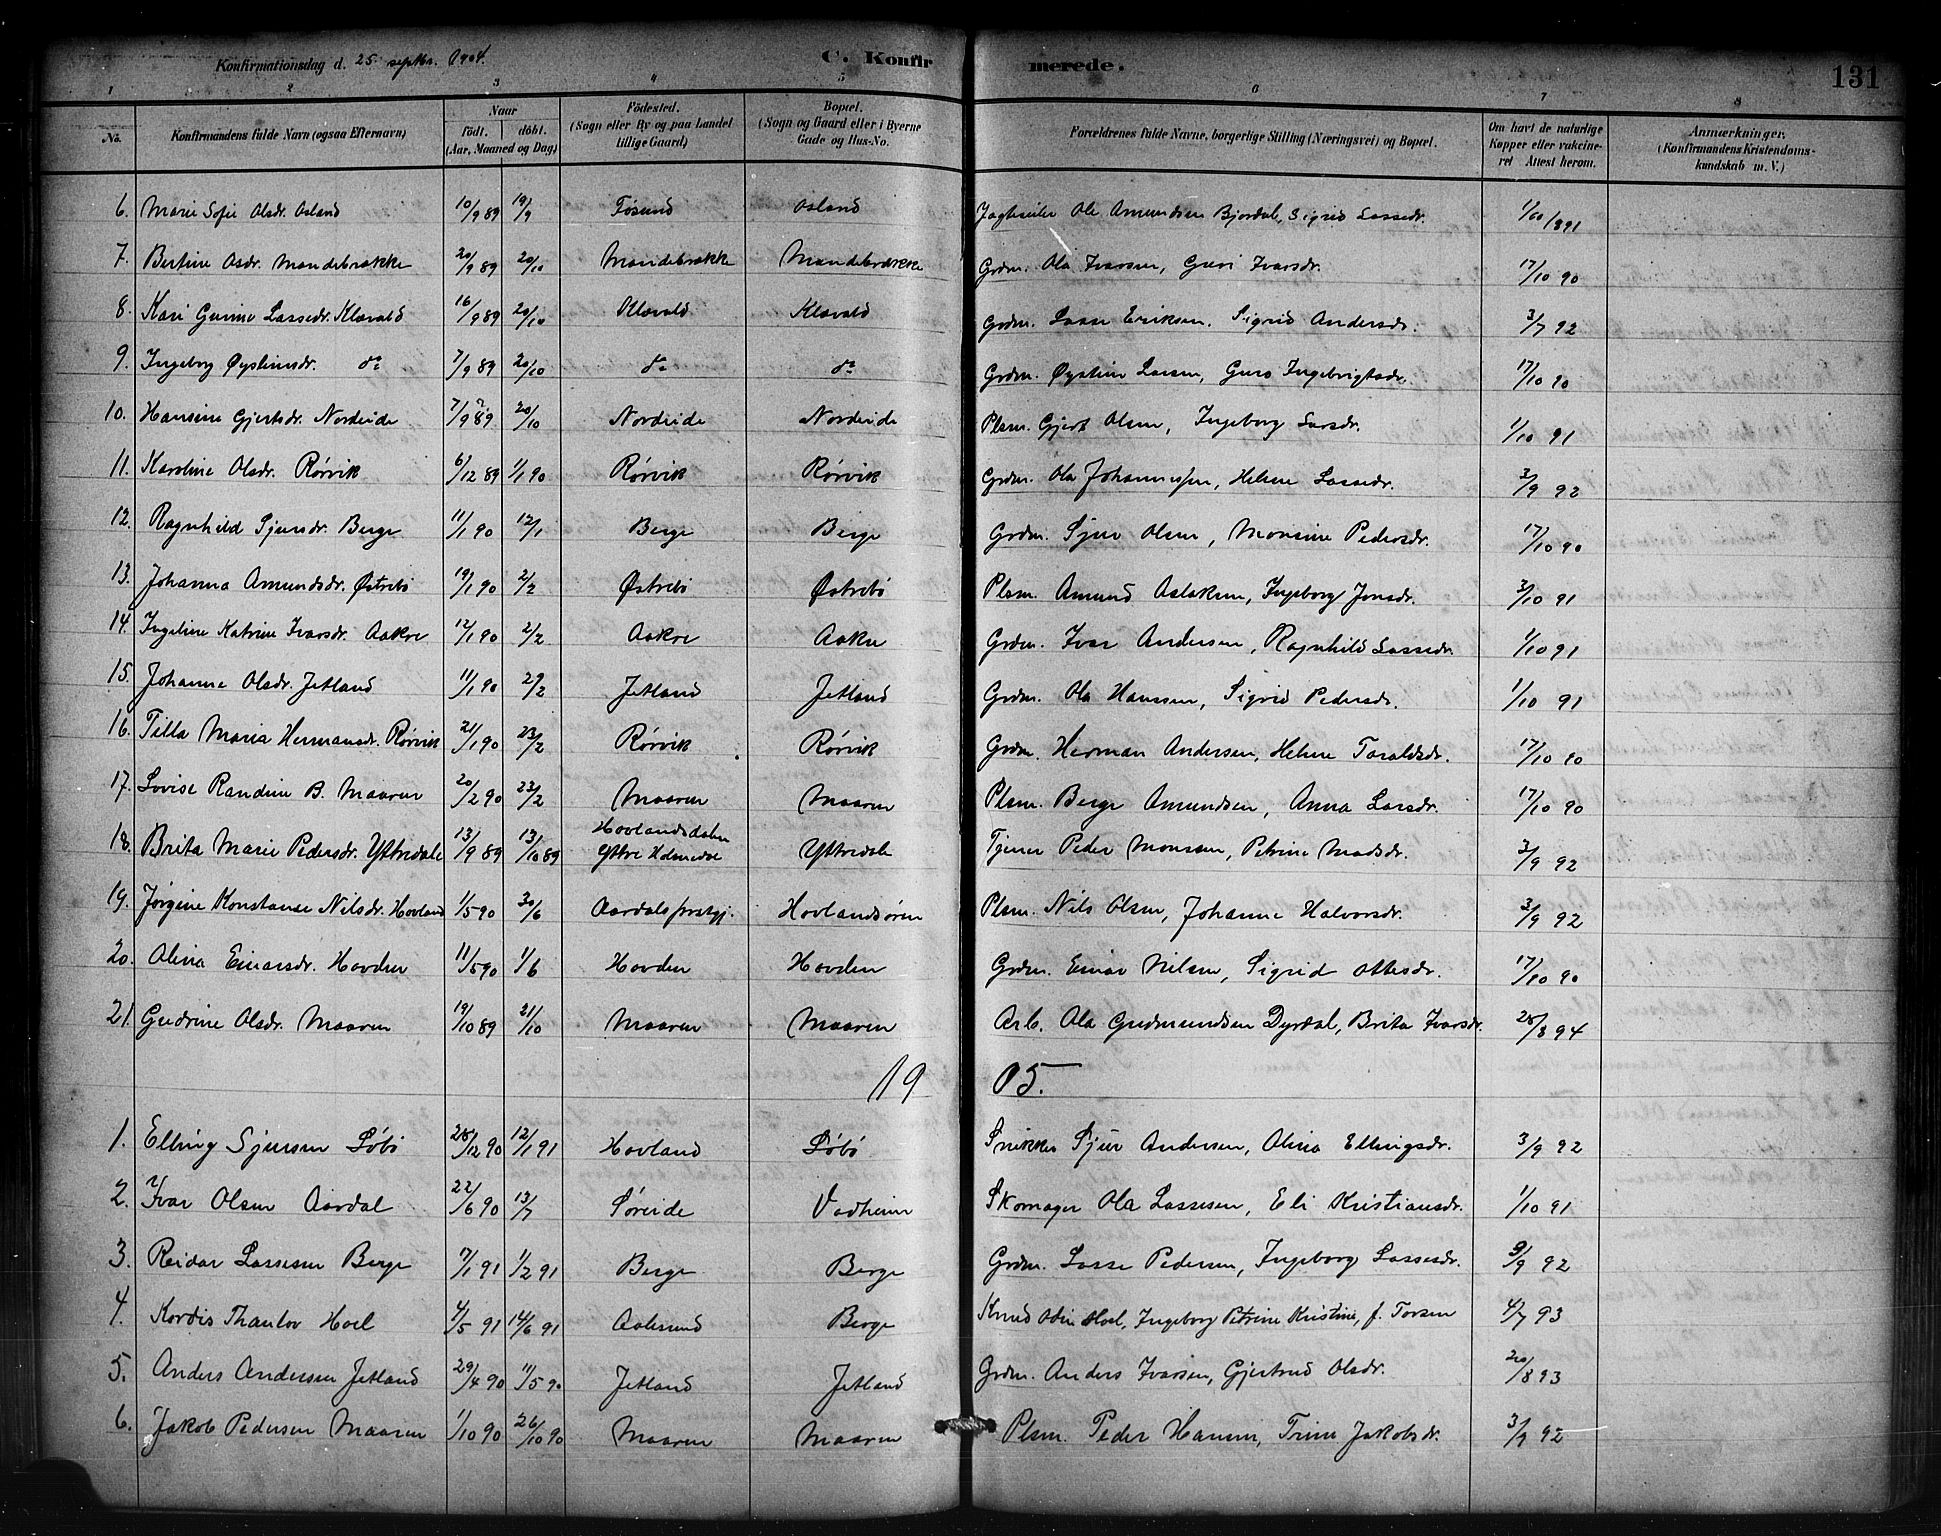 Konfirmationsdag d. 25 septbr. 1904. C. Konfirmerede. 131
1 2 3 4 5 6 7 8
No. Konfirmandens fulde Navn (ogsaa Efternavn) Naar født. døbt. (Aar, Maaned og Dag) Fødested. (Sogn eller By og paa Landet tillige Gaard) Bopæl. (Sogn og Gaard eller i Byerne Gade og Hus-No. Forældrenes fulde Navne, borgerlige Stilling (Næringsvei) og Bopæl. Om havt de naturlige Kopper eller vakcineret Attest herom. Anmærkninger. (Konfirmandens Kristendomskundskab m. V.)
6. Marie Sofie Olsdr. Osland 10/9 89 19/9 Osland Ole Amundsen Bjordal, Sigrid Lassedr. 1/10 1891
7. Bertine Olsdr. Mandebrække 20/9 89 20/10 Mandebrække Mandebrække Grdm. Ola Ivarsen, Guri Ivarsdr. 17/10 90
8. Kari Gurine Lassedr. Klævold 16/9 89 20/10 Klævold Klævold Grdm. Lasse Eriksen, Sigrid Andersdr. 3/7 92
9. Ingeborg Øystinsdr. do 7/9 89 20/10 do do Grdm. Øystein Lassen, Guro Ingebrigtsdr. 17/10 90
10. Hansine Gjertsdr. Nordeide 7/9 89 20/10 Nordeide Nordeide Plsm. Gjert Olsen, Ingeborg Larsdr. 1/10 91
11. Karoline Olsdr. Rørvik 6/12 89 1/1 90 Rørvik Rørvik Grdm. Ola Johannessen, Helene Lassedr. 3/9 92
12. Ragnhild Sjursdr. Berge 11/1 90 12/1 Berge Berge Grdm. Sjur Olsen, Monsine Pedersdr. 17/10 90
13. Johanna Amundsdr. Østrebø 19/1 90 2/2 Østrebø Østrebø Plsm. Amund Aslaksen, Ingeborg Jonsdr. 3/10 91
14. Ingeline Katrine Ivarsdr. Aakre 12/1 90 2/2 Aakre Aakre Grdm. Ivar Andersen, Ragnhild Lassedr. 1/10 91
15. Johanne Olsdr. Jetland 11/1 90 2/2 Jetland Jetland Grdm. Ola Hanssen, Sigrid Pedersdr. 1/10 91
16. Tilla Maria Hermansdr. Rørvik 21/1 90 23/2 Rørvik Rørvik Grdm. Herman Andersen, Helene Taraldsdr. 17/10 90
17. Lovise Randine B. Maaren 20/2 90 23/2 Maaren Maaren Plsm. Berge Amundsen, Anna Larsdr. 17/10 90
18. Brita Marie Pedersdr. Yttredale 13/9 89 13/10 89 Hovlandsdalen Yttre Holmedal Yttredale Tjener Peder Monssen, Petrine Madsdr. 3/9 92
19. Jørgine Konstanse Nilsdr. Hovland 1/5 90 30/6 Aardals prstgj. Hovlandsøren Plsm. Nils Olsen, Johanne Halvorsdr. 3/9 92
20. Alina Einarsdr. Hovden 11/5 90 1/6 Hovden Hovden Grdm. Einar Nilsen, Sigrid Ottesdr. 17/10 90
21. Gudrine Olsdr. Maaren 19/10 89 21/10 Maaren Maaren Arb. Ola Gudmundsen Dyrdal, Brita Ivarsdr. 25/8 94
1905.
1. Elling SjursenLøbø 25/12 90 12/1 91 Hovland Løbø Snikker Sjur Andersen, Alina Ellingsdr. 3/9 92
2. Ivar Olsen Aardal 22/6 90 13/7 Søreide Vadheim Skomager Ola Lassesen, Eli Kristiansdr. 1/10 91
3. Reidar Lassesen Berge 7/1 91 1/2 91 Berge Berge Grdm. Lasse Pedersen, Ingeborg Lassesdr. 3/9 92
4. Kordis Thaulov Hoel 4/5 91 14/6 91 Aalesund Berge Knud Odin Hoel, Ingeborg Petrine Kristine, f. Torsen 4/7 93
5. Anders Andersen Jetland 29/4 90 11/5 90 Jetland Jetland Grdm. Anders Ivarsen, Gjertrud Olsdr. 20/8 93
6. Jakob Pedersen Maaren 1/10 90 26/10 90 Maaren Maaren Plsm. Peder Hansen, Trine Jakobsdr. 3/9 92